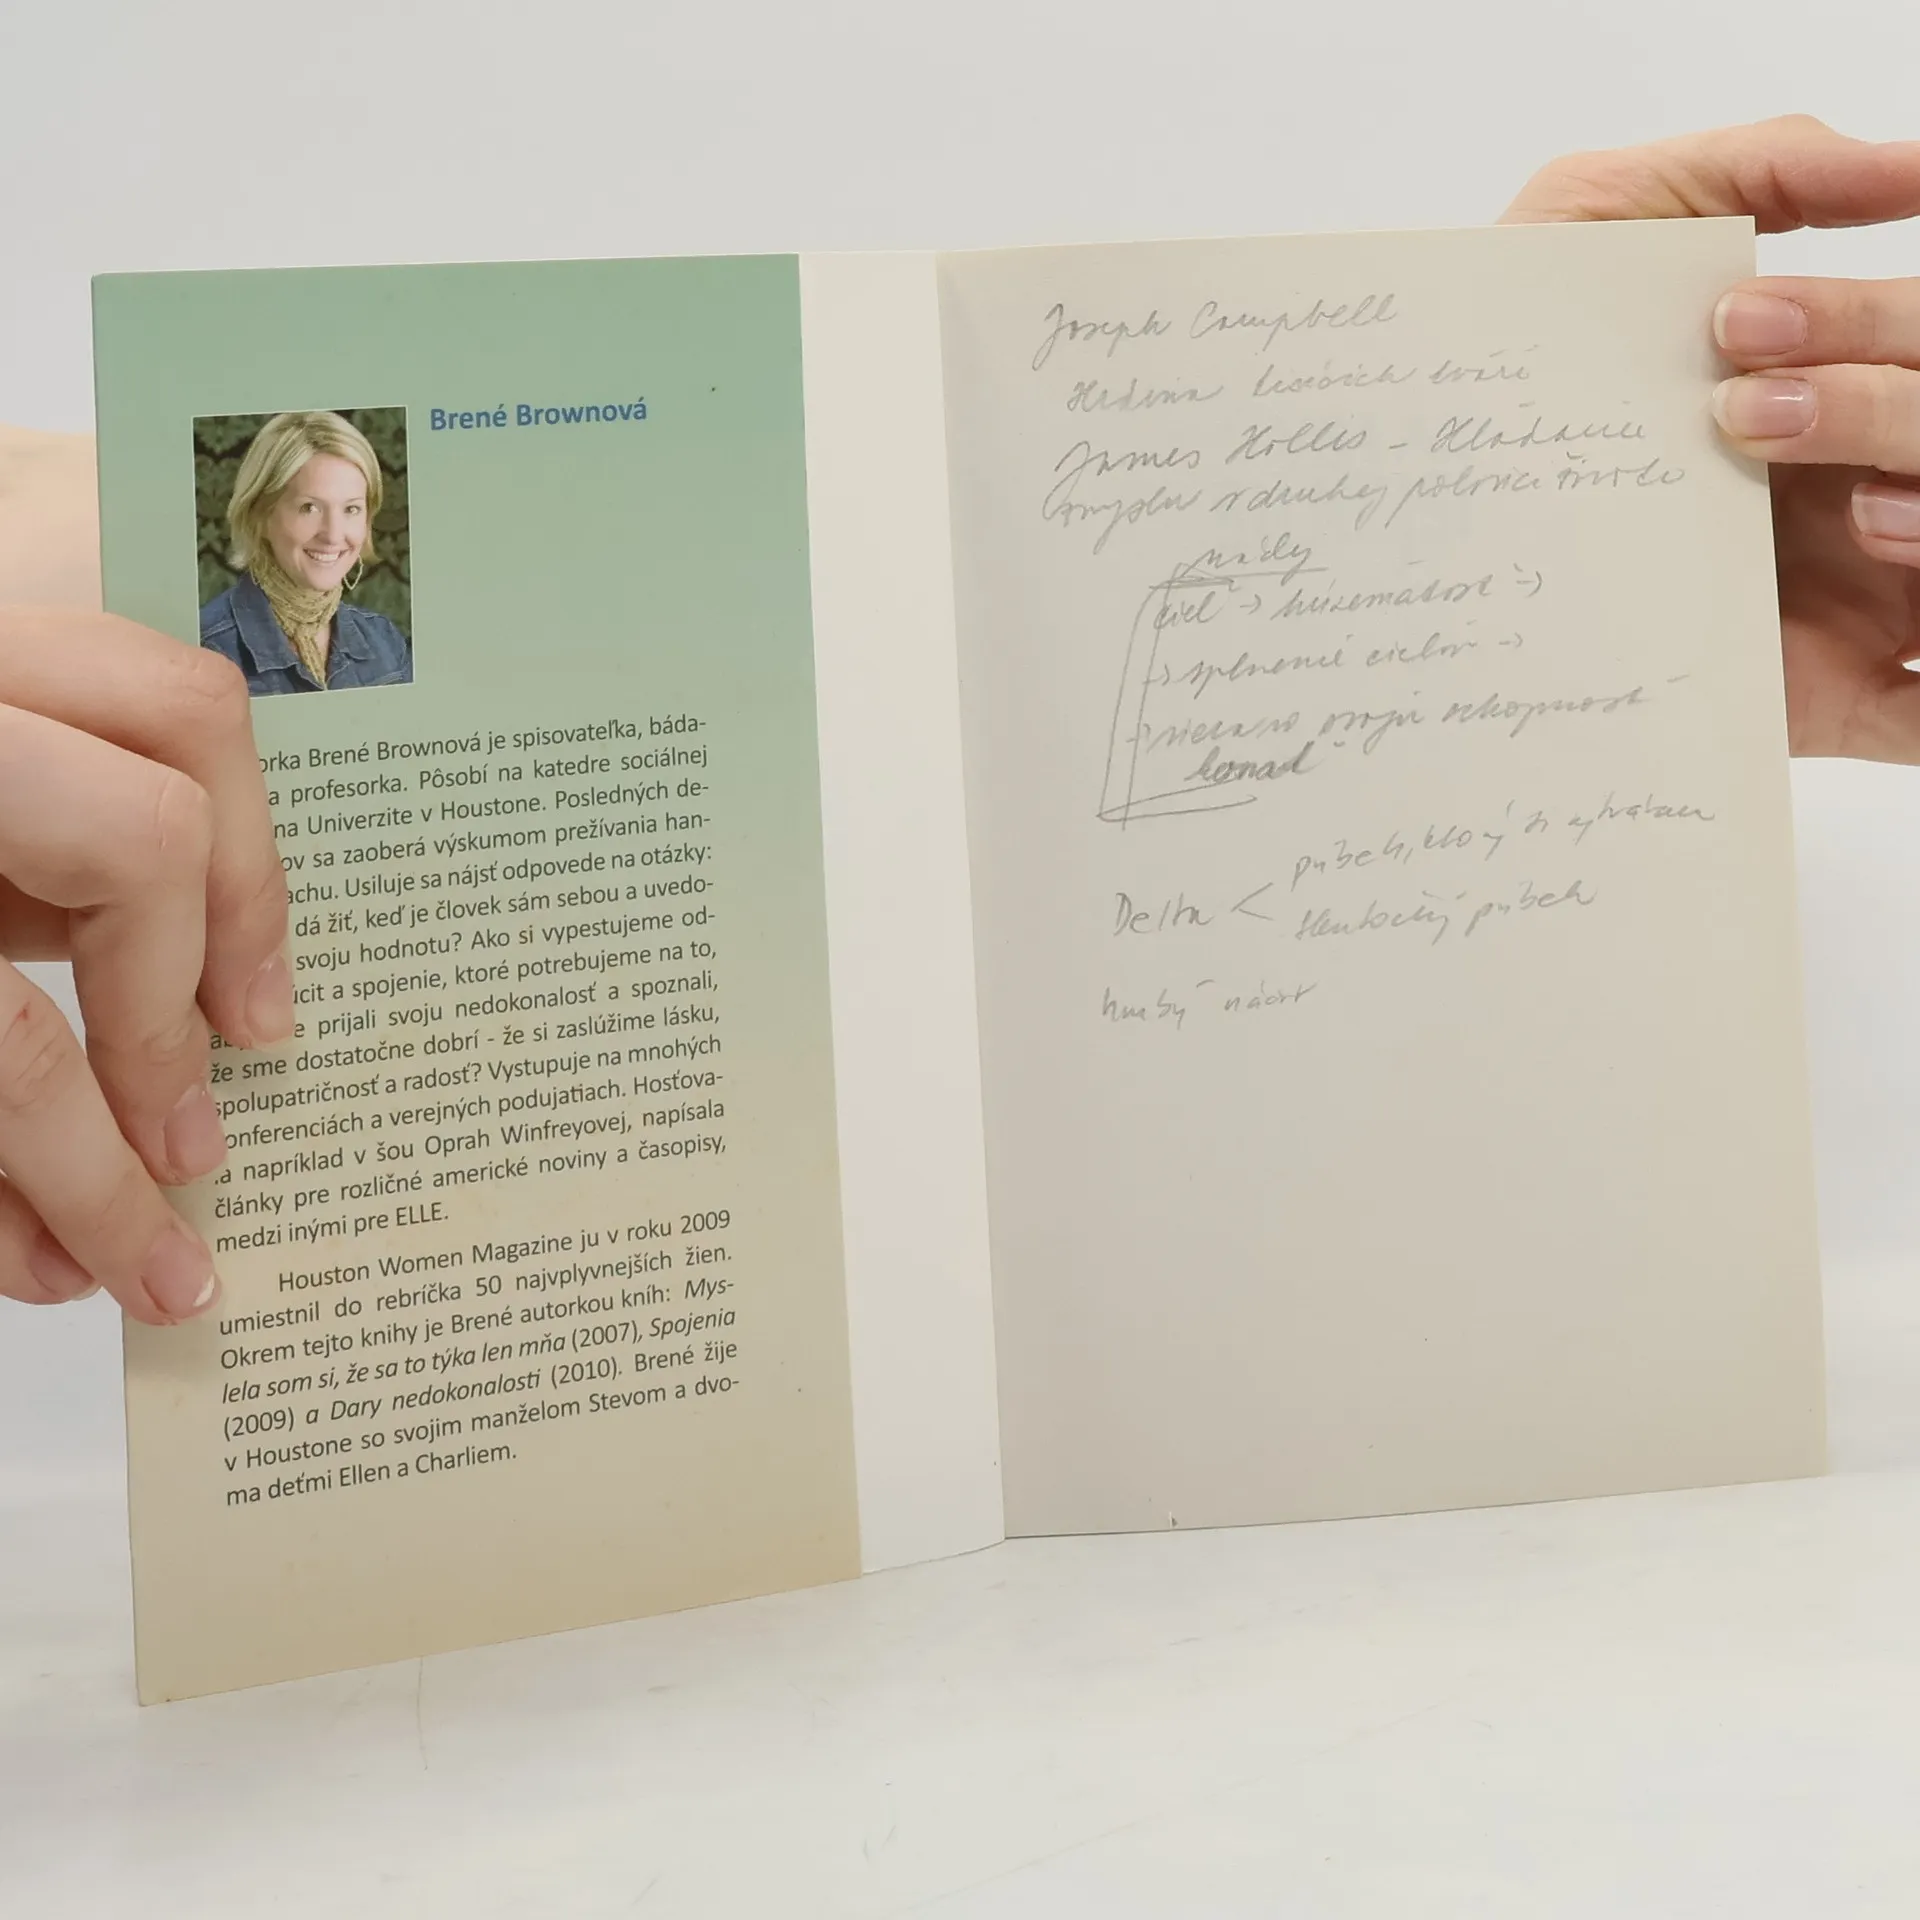 Brené Brownová
orka Brené Brownová je spisovateľka, báda-
a profesorka. Pôsobí na katedre sociálnej
na Univerzite v Houstone. Posledných de-
ov sa zaoberá výskumom prežívania han-
achu. Usiluje sa nájsť odpovede na otázky:
dá žiť, keď je človek sám sebou a uvedo-
svoju hodnotu? Ako si vypestujeme od-
úcit a spojenie, ktoré potrebujeme na to,
e prijali svoju nedokonalosť a spoznali,
že sme dostatočne dobrí - že si zaslúžime lásku,
spolupatričnosť a radosť? Vystupuje na mnohých
onferenciách a verejných podujatiach. Hosťova-
a napríklad v šou Oprah Winfreyovej, napísala
články pre rozličné americké noviny a časopisy,
medzi inými pre ELLE.
Houston Women Magazine ju v roku 2009
umiestnil do rebríčka 50 najvplyvnejších žien.
Okrem tejto knihy je Brené autorkou kníh: Mys-
lela som si, že sa to týka len mňa (2007), Spojenia
(2009) a Dary nedokonalosti (2010). Brené žije
v Houstone so svojim manželom Stevom a dvo-
ma deťmi Ellen a Charliem.
Joseph Campbell
Hrdina tisících tváří
James Hollis - Hľadanie
zmyslu v druhej polovici života
cieľ → húževnatosť →
→ splnenie cieľov →
svoju schopnosť
konať
Delta < príbeh, ktorý si
skutočný príbeh
hrubý náčrt